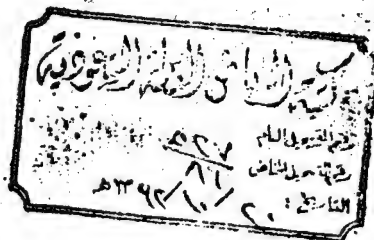 مكتبة الرياض العامة السعودية
رقم التسجيل العام
رقم تسجيل الخاص ٨٦
التاريخ : ٢٠ / ١٠ / ١٣٩٢ هـ